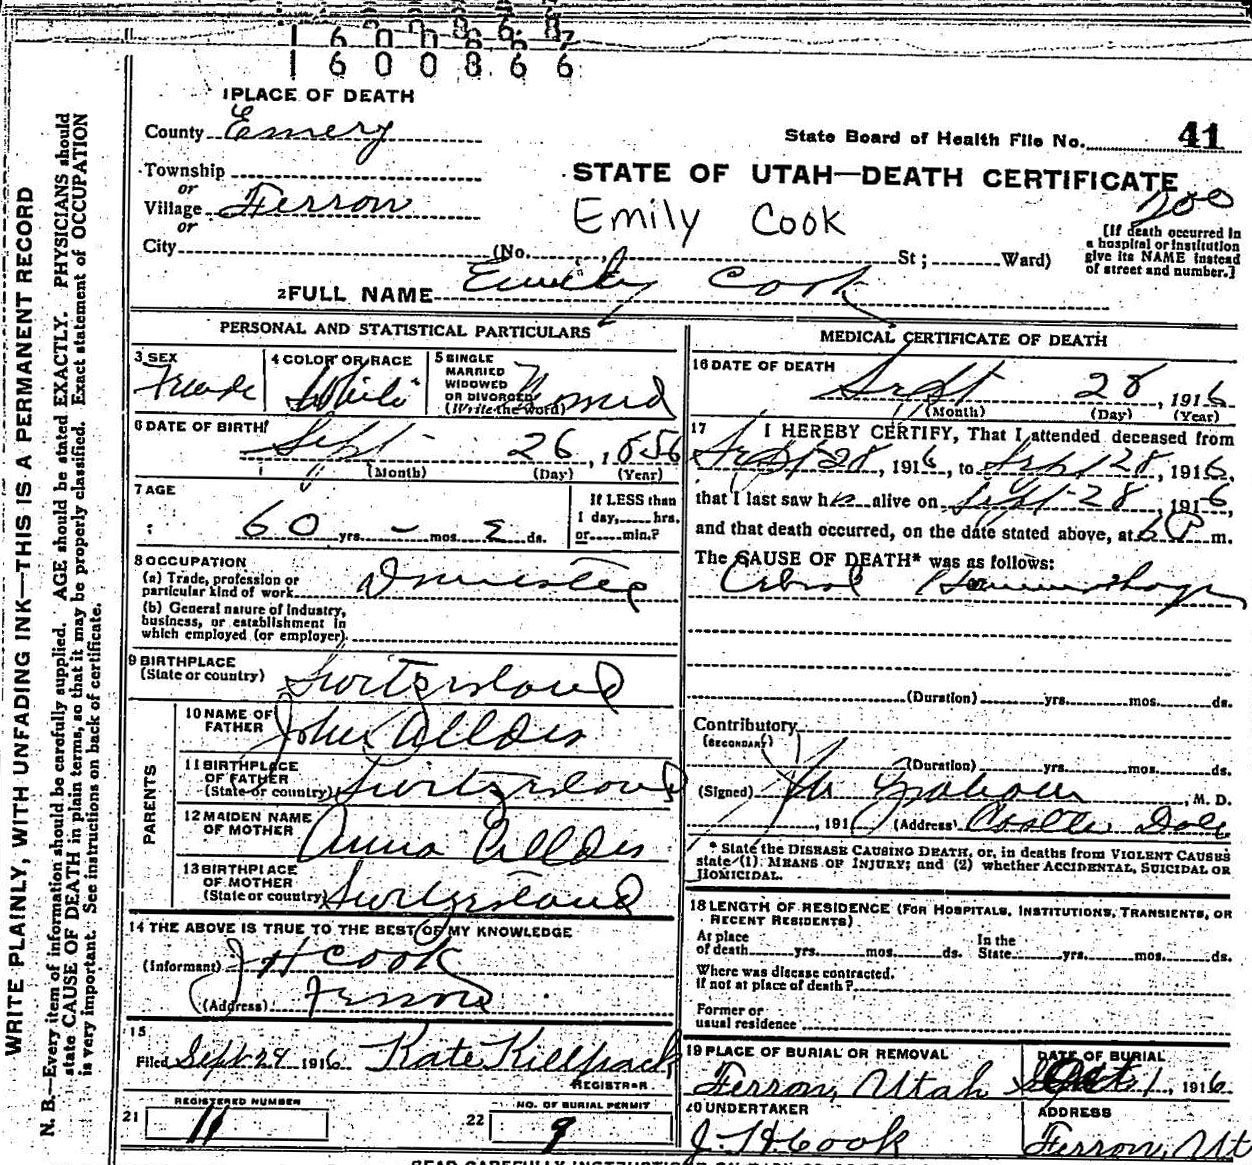 1600867
1600866
1 PLACE OF DEATH
County Emery
State Board of Health File No. 41
Township
or
STATE OF UTAH—DEATH CERTIFICATE
Village Ferron
or
Emily Cook
200
[If death occurred in
a hospital or institution
give its NAME instead
of street and number.]
City (No. St; Ward)
2 FULL NAME Emily Cook
PERSONAL AND STATISTICAL PARTICULARS
3 SEX
Female
4 COLOR OR RACE
White
5 SINGLE
MARRIED
WIDOWED
OR DIVORCED
(Write the word)
6 DATE OF BIRTH
Sept 26, 1856
(Month) (Day) (Year)
7 AGE
60 yrs. – mos. 2 ds.
If LESS than
1 day, hrs.
or min.?
8 OCCUPATION
(a) Trade, profession or
particular kind of work Domestic
(b) General nature of industry,
business, or establishment in
which employed (or employer).
9 BIRTHPLACE
(State or country) Switzerland
PARENTS
10 NAME OF
FATHER John
11 BIRTHPLACE
OF FATHER
(State or country) Switzerland
12 MAIDEN NAME
OF MOTHER Anna
13 BIRTHPLACE
OF MOTHER
(State or country) Switzerland
14 THE ABOVE IS TRUE TO THE BEST OF MY KNOWLEDGE
(Informant) J H Cook
(Address) Ferron
15
Filed Sept 29 1916 Kate Killpack
REGISTRAR
REGISTERED NUMBER
21 11
NO. OF BURIAL PERMIT
22 9
MEDICAL CERTIFICATE OF DEATH
16 DATE OF DEATH
Sept 28, 1916
(Month) (Day) (Year)
17 I HEREBY CERTIFY, That I attended deceased from
Sept 28, 1916, to Sept 28, 1916,
that I last saw h alive on Sept 28, 1916,
and that death occurred, on the date stated above, at 6 P m.
The CAUSE OF DEATH* was as follows:
(Duration) yrs. mos. ds.
Contributory
(SECONDARY)
(Duration) yrs. mos. ds.
(Signed) , M. D.
, 191 (Address) Castle Dale
* State the DISEASE CAUSING DEATH, or, in deaths from VIOLENT CAUSES
state (1) MEANS OF INJURY; and (2) whether ACCIDENTAL, SUICIDAL OR
HOMICIDAL.
18 LENGTH OF RESIDENCE (FOR HOSPITALS, INSTITUTIONS, TRANSIENTS, OR
RECENT RESIDENTS)
At place
of death yrs. mos. ds.
In the
State yrs. mos. ds.
Where was disease contracted.
if not at place of death?
Former or
usual residence
19 PLACE OF BURIAL OR REMOVAL
Ferron, Utah
DATE OF BURIAL
Oct 1, 1916
20 UNDERTAKER
J. H. Cook
ADDRESS
Ferron, Ut
WRITE PLAINLY, WITH UNFADING INK—THIS IS A PERMANENT RECORD
N. B.—Every item of information should be carefully supplied. AGE should be stated EXACTLY. PHYSICIANS should
state CAUSE OF DEATH in plain terms, so that it may be properly classified. Exact statement of OCCUPATION
is very important. See instructions on back of certificate.